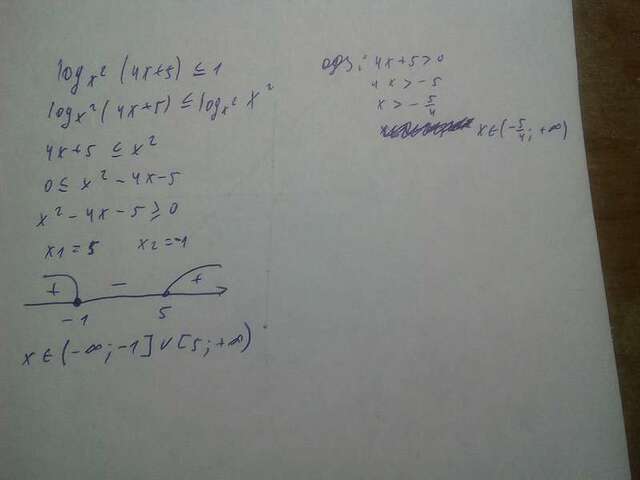 log x² (4x+5) ≤ 1
log x² (4x+5) ≤ log x² x²
4x+5 ≤ x²
0 ≤ x² - 4x - 5
x² - 4x - 5 ≥ 0
x1 = 5 x2 = -1
+ - +
-1 5
x ∈ (-∞; -1] ∪ [5; +∞)
одз: 4x+5>0
4x > -5
x > -5/4
x ∈ (-5/4; +∞)